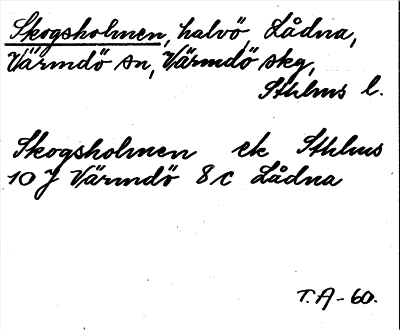 Skogsholmen, halvö, Lådna,
Värmdö sn, Värmdö skg,
Sthlms l.
Skogsholmen ek Sthlms
10 J Värmdö 8 c Lådna
T.A-60.